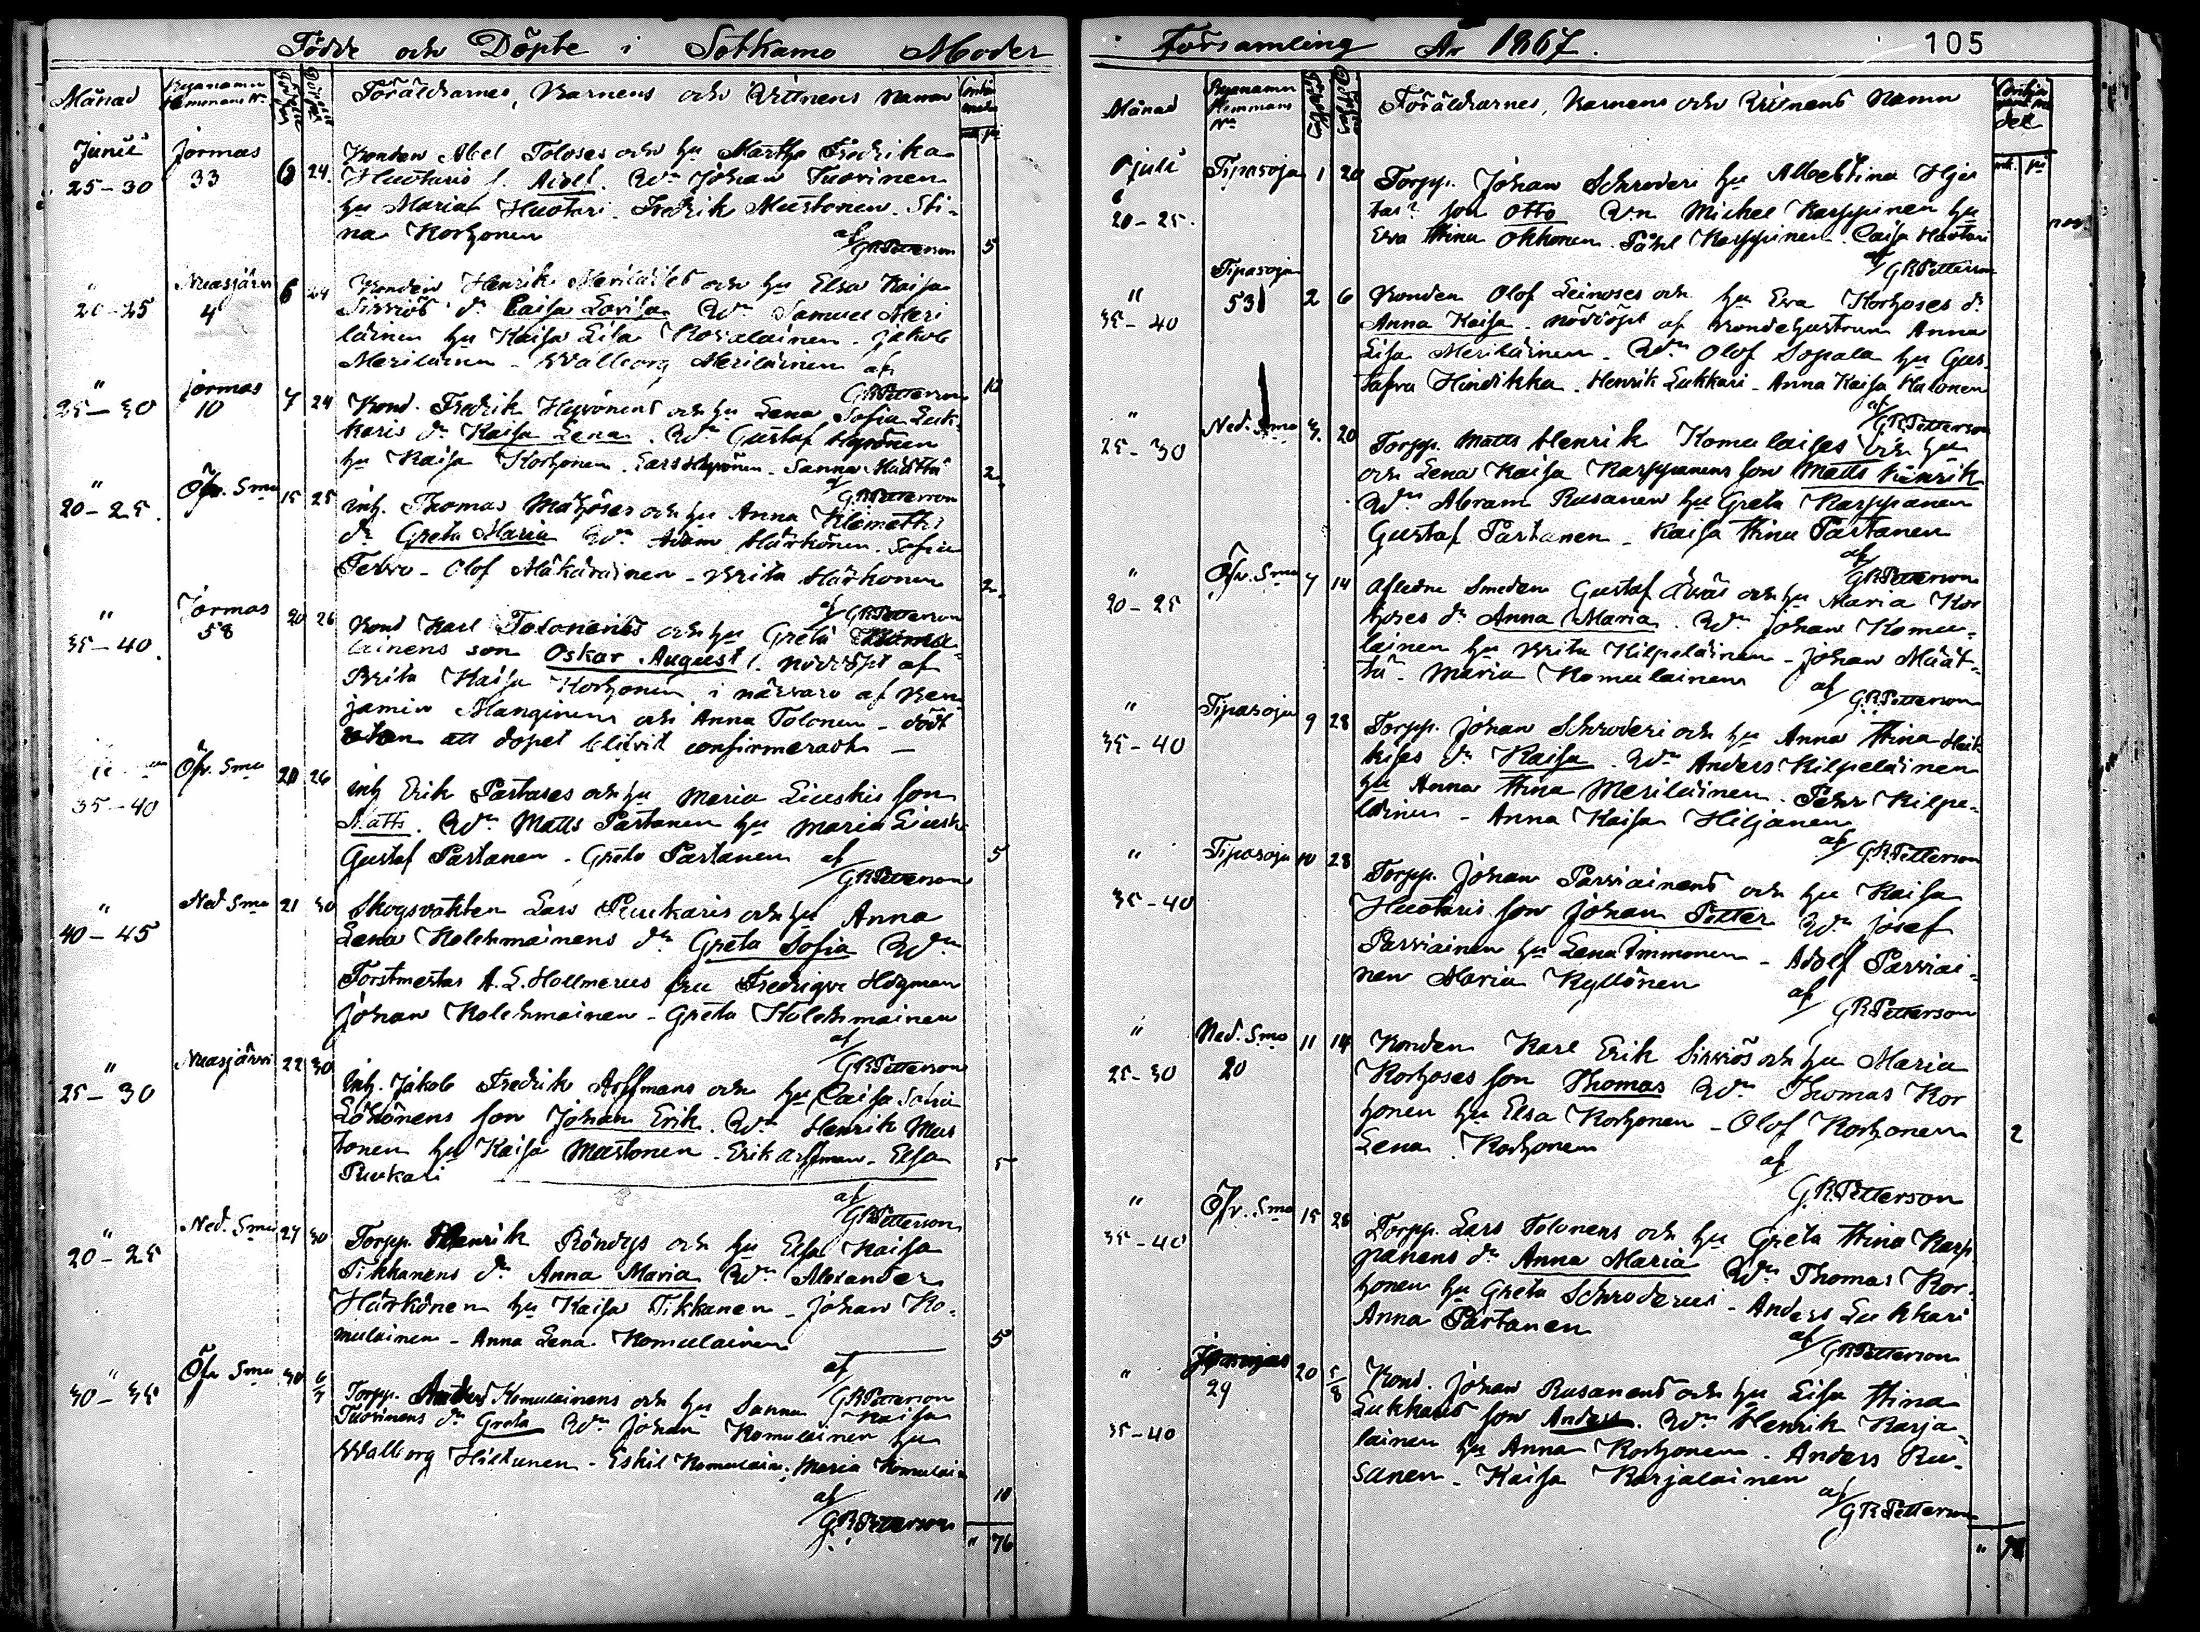 Födde och Döpte i Sotkamo Moder
Månad
Byanamn
Hemmans No
Föräldrarnes, Barnens och Vittnens Namn
Junii Jormas
25-30 33 6 24. Bonden Abel Toloses och hu Martha Fredrika
Huotaris s. Adolf. Wn Johan Tuovinen
hu Maria Huotari. Fredrik Mustonen. Sti-
na Korhonen af
GRPetterson 5
" Nuasjärvi
20-25 4 6 24 Bonden Henrik Meriläises och hu Elsa Kaisa
Sirviös dr Caisa Lovisa Wn Samuel Meri
läinen hu Kaisa Lisa Kovalainen. Jakob
Meriläinen - Wallborg Meriläinen af
GRPetterson 10
" Jormas
25-30 10 7 24 Bond. Fredrik Hyvönens och hu Lena Sofia Luk-
karis dr Kaisa Lena. Wn Gustaf Hyvönen
hu Kaisa Korhonen. Lars Hyvönen. Sanna Määttä 2
af GRPetterson
" Öfv. Smo
20-25. 15 25 inh. Thomas Mähöses och hu Anna Klemettis
dr Greta Maria Wn Adam Härkönen. Sofia
Tervo - Olof Mäkäräinen - Brita Härkonen 2
af GRPetterson
" Jormas
35-40. 58 20 26 Bond Karl Tolonens och hu Greta
lainens son Oskar August. nöddöpt af
Brita Kaisa Korhonen i närvaro af Ben
jamin Manginen och Anna Tolonen - dödt
utan att dopet blifvit confirmeradt -
Öfv. Smo
35-40 20 26 inh Erik Partases och hu Maria Liuskis son
Matts. Wn Matts Partanen hu Maria Liuski
Gustaf Partanen - Greta Partanen af 5
GRPetterson
" Ned Smo
40-45 21 30 Skogsvakten Lars Puukaris och hu Anna
Lena Kolehmainens dr Greta Sofia Wn
Forstmestar A. L. Hollmerus fru Fredrique Högman
Johan Kolehmainen - Greta Kolehmainen
af
GRPetterson
" Nuasjärvi
25-30 22 30 inh. Jakob Fredrik Arffmans och hu Caisa Sofia
Löhönens son Johan Erik. Wn Henrik Mus
tonen hu Kaisa Mustonen - Erik Arffman - Elsa
Puukari 5
af
GRPetterson
" Ned. Smo
20-25 27 30 Torpp. Henrik Röndys och hu Elsa Kaisa
Tikkanens dr Anna Maria Wn Alexander
Härkönen hu Kaisa Tikkanen - Johan Ko-
mulainen - Anna Lena Komulainen 5
af
GRPetterson
" Öfv Smo
30-35 30 6/7 Torpp. Anders Komulainens och hu Sanna Kaisa
Tuovinens dr Greta Wn Johan Komulainen hu
Wallborg Hiltunen - Eskil Komulain, Maria Komulain
10
af
GRPetterson
" 76
Församling År 1867. 105
Månad
Byanamn
Hemmans
No
Föräldrarnes, Barnens och Vittnens Namn
Juli Tipasoja 1 20 Torpp. Johan Schroderi hu Albertina Hjer
20-25. tas? son Otto Wn Michel Karppinen hu
Eva Stina Okkonen. Påhl Karppinen. Caisa Huotari
af GRPetterson
" Tipasoja
35-40 53 2 6 Bonden Olof Leinoses och hu Eva Korhoses dr
Anna Kaisa. nöddöpt af Bondehustrun Anna
Lisa Meriläinen. Wn Olof Sopala hu Gus
tafva Hindikka. Henrik Lukkari - Anna Kaisa Halonen
af
GRPetterson
" Ned. Smo
25-30 3. 20 Torpp. Matts Henrik Komulaises och hu
och Lena Kaisa Karppanens son Matts Henrik
Wn Abram Rusanen hu Greta Karppanen
Gustaf Partanen - Kaisa Stina Partanen
af
GRPetterson
" Öfv. Smo
20-25 7 14 afledne Smeden Gustaf och hu Maria Kor
hoses dr Anna Maria. Wn Johan Komu-
lainen hu Brita Kilpeläinen - Johan Määt-
tä - Maria Komulainen af
GRPetterson
" Tipasoja
35-40 9 28 Torpp. Johan Schroderi och hu Anna Stina Heik
kises dr Kaisa. Wn Anders Kilpeläinen
hu Anna Stina Meriläinen. Pehr Kilpe-
läinen - Anna Kaisa Hiljanen
af GRPetterson
" Tipasoja
35-40 10 28 Torpp. Johan Parviainens och hu Kaisa
Huotaris son Johan Petter Wn Josef
Parviainen hu Lena Timmonen - Adolf Parviai-
nen Maria Kyllönen af
GRPetterson
" Ned. Smo
25-30 20 11 14 Bonden Karl Erik Sirviös och hu Maria
Korhoses son Thomas Wn Thomas Kor
honen hu Elsa Korhonen - Olof Korhonen
Lena Korhonen 2
af
GRPetterson
" Öfv. Smo
35-40 15 28 Torpp. Lars Tolonens och hu Greta Stina Karp
panens dr Anna Maria Wn Thomas Kor-
honen hu Greta Schroderus - Anders Lukkari
Anna Partanen af
GRPetterson
" Jormas
35-40 29 20 5/8 Bond. Johan Rusanens och hu Lisa Stina
Lukkaris son Anders. Wn Henrik Karja-
lainen hu Anna Korhonen. Anders Ru-
sanen - Kaisa Karjalainen
af
GRPetterson